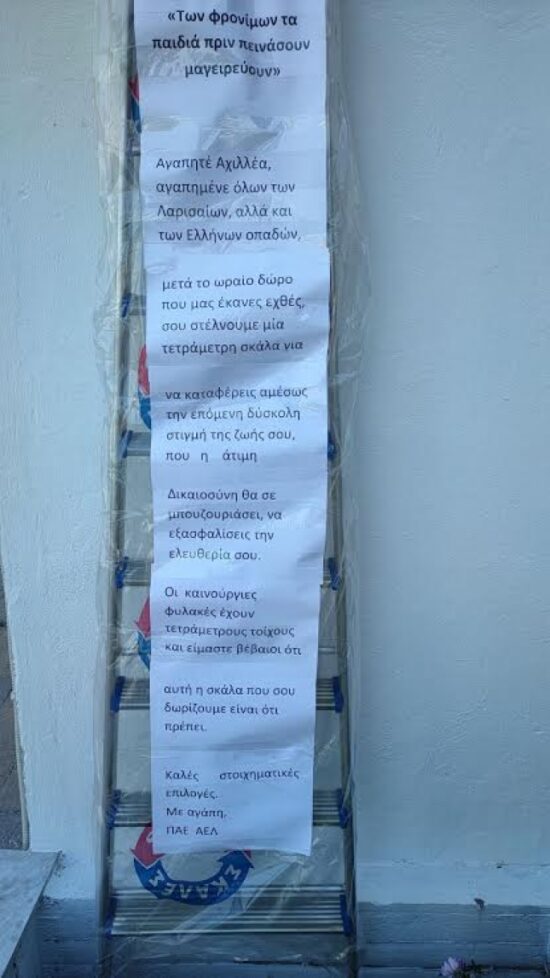 «Των φρονίμων τα
παιδιά πριν πεινάσουν
μαγειρεύουν»
Αγαπητέ Αχιλλέα,
αγαπημένε όλων των
Λαρισαίων, αλλά και
των Ελλήνων οπαδών,
μετά το ωραίο δώρο
που μας έκανες εχθές,
σου στέλνουμε μία
τετράμετρη σκάλα για
να καταφέρεις αμέσως
την επόμενη δύσκολη
στιγμή της ζωής σου,
που η άτιμη
Δικαιοσύνη θα σε
μπουζουριάσει, να
εξασφαλίσεις την
ελευθερία σου.
Οι καινούργιες
φυλακές έχουν
τετράμετρους τοίχους
και είμαστε βέβαιοι ότι
αυτή η σκάλα που σου
δωρίζουμε είναι ότι
πρέπει.
Καλές στοιχηματικές
επιλογές.
Με αγάπη,
ΠΑΕ ΑΕΛ
ΣΚΑΛΕΣ